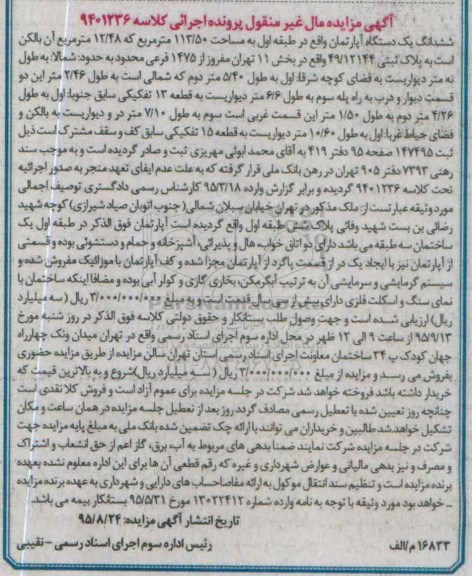 آگهی مزایده مال غیر منقول پرونده اجرائی کلاسه ۹۴۰۱۲۳۶
ششدانگ یک دستگاه آپارتمان واقع در طبقه اول به مساحت ۱۱۳/۵۰ مترمربع که ۱۲/۴۸ مترمربع آن بالکن
است به پلاک ثبتی ۴۹/۱۲۱۴۴ واقع در بخش ۱۱ تهران مفروز از ۱۴۷۵ فرعی محدود به حدود: شمالا: به طول
نه متر دیواریست به فضای کوچه شرقا: اول به طول ۵/۴۰ متر دوم که شمالی است به طول ۲/۴۶ متر این دو
قسمت دیوار و درب به راه پله سوم به طول ۶/۶ متر دیواریست به قطعه ۱۳ تفکیکی سابق جنوبا: اول به طول
۴/۲۶ متر دوم به طول ۱/۵۰ متر این قسمت غربی است سوم به طول ۷/۱۰ متر در و دیواریست به بالکن و
فضای حیاط غربا: اول به طول ۱۰/۶۰ متر دیواریست به قطعه ۱۵ تفکیکی سابق کف و سقف مشترک است ذیل
ثبت ۱۴۷۴۹۵ صفحه ۹۵ دفتر ۴۱۹ به آقای محمد ابوئی مهریزی ثبت و صادر گردیده است و به موجب سند
رهنی ۷۳۹۳ دفتر ۹۰۵ تهران در رهن بانک ملی قرار گرفته که به علت عدم ایفای تعهد منجر به صدور اجرائیه
تحت کلاسه ۹۴۰۱۲۳۶ گردیده و برابر گزارش وارده ۹۵/۳/۱۸ کارشناس رسمی دادگستری توصیف اجمالی
مورد وثیقه عبارتست از: ملک مذکور در تهران خیابان سبلان شمالی (جنوب اتوبان صیاد شیرازی) کوچه شهید
رضائی بن بست شهید وفائی پلاک شش طبقه اول واقع گردیده است آپارتمان فوق الذکر در طبقه اول یک
ساختمان سه طبقه می باشد دارای دو اتاق خواب، هال و پذیرائی، آشپزخانه و حمام و دستشوئی بوده و قسمتی
از آپارتمان نیز با ایجاد یک در از قسمت پاگرد از آپارتمان مجزا شده و کف آپارتمان با موزائیک مفروش شده و
سیستم گرمایشی و سرمایشی آن به ترتیب آبگرمکن، بخاری گازی و کولر آبی بوده و مضافا اینکه ساختمان با
نمای سنگ و اسکلت فلزی دارای بیش از سی سال قدمت است و به مبلغ ۳/۰۰۰/۰۰۰/۰۰۰ ریال (سه میلیارد
ریال) ارزیابی شده است و جهت وصول طلب بستانکار و حقوق دولتی کلاسه فوق الذکر در روز شنبه مورخ
۹۵/۹/۱۳ از ساعت ۹ الی ۱۲ ظهر در محل اداره سوم اجرای اسناد رسمی واقع در تهران میدان ونک چهارراه
جهان کودک پ ۳۴ ساختمان معاونت اجرای اسناد رسمی استان تهران سالن مزایده از طریق مزایده حضوری
بفروش می رسد و مزایده از مبلغ ۳/۰۰۰/۰۰۰/۰۰۰ ریال (سه میلیارد ریال) شروع و به بالاترین قیمت که
خریدار داشته باشد فروخته خواهد شد شرکت در جلسه مزایده برای عموم آزاد است و فروش کلا نقدی است
چنانچه روز تعیین شده با تعطیل رسمی مصادف گردد روز بعد از تعطیل جلسه مزایده در همان ساعت و مکان
تشکیل خواهد شد طالبین و خریداران می توانند با ارائه چک تضمین شده بانک ملی به مبلغ پایه مزایده جهت
شرکت در جلسه مزایده شرکت نمایند ضمنا بدهی های مربوط به آب، برق، گاز اعم از حق انشعاب و اشتراک
و مصرف و نیز بدهی مالیاتی و عوارض شهرداری و غیره که رقم قطعی آن ها برای این اداره معلوم نشده بعهده
برنده مزایده است و تنظیم سند انتقال موکول به ارائه مفاصاحساب های دارایی و شهرداری به عهده برنده مزایده
خواهد بود مورد وثیقه با توجه به نامه وارده شماره ۱۳۰۲۲۴۱۲ مورخ ۹۵/۵/۳۱ بستانکار بیمه می باشد.
تاریخ انتشار آگهی مزایده: ۹۵/۸/۲۴
۱۶۸۳۳ م/الف رئیس اداره سوم اجرای اسناد رسمی - نقیبی